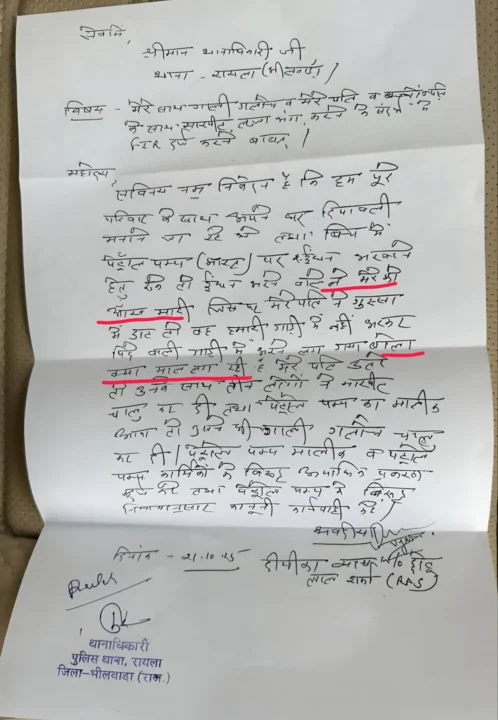 सेवामें,
श्रीमान थानाधिकारी जी
थाना - रायला (भीलवाड़ा)
विषय - मेरे साथ गाली गलौच व मेरे पति व
के साथ मारपीट, लज्जा भंग, करने के संदर्भ में
FIR दर्ज करने बाबत्।
महोदय
सविनय नम्र निवेदन है कि हम पूरे
परिवार के साथ अपने घर दिपावली
मनाने जा रहे थे तथा बिच में
पेट्रोल पम्प पर ईंधन भरवाने
हेतु रुके तो ईंधन भरने वाले ने मेरे को
आँख मारी जिस पर मेरे पति ने गुस्सा
में डाटा तो वह हमारी गाड़ी में नहीं भरकर
पिछे वाली गाड़ी में भरने लग गया बोला
क्या माल लग रही है मेरे पति उतरे
तो उनके साथ तीन लोगों ने मारपीट
चालु कर दी तथा पेट्रोल पम्प का मालीक
आया तो उसने भी गाली गलौच चालु
कर दी। पेट्रोल पम्प मालीक व पेट्रोल
पम्प कार्मिकों के विरुद्ध अपराधिक प्रकरण
दर्ज करे तथा पेट्रोल पम्प के विरुद्ध
नियमानुसार कानूनी कार्यवाही करे।
भवदीय
दिनांक - 21.10.25
दीपिका व्यास W/o छोटू
लाल शर्मा (RAS)
थानाधिकारी
पुलिस थाना, रायला
जिला-भीलवाडा (राज.)